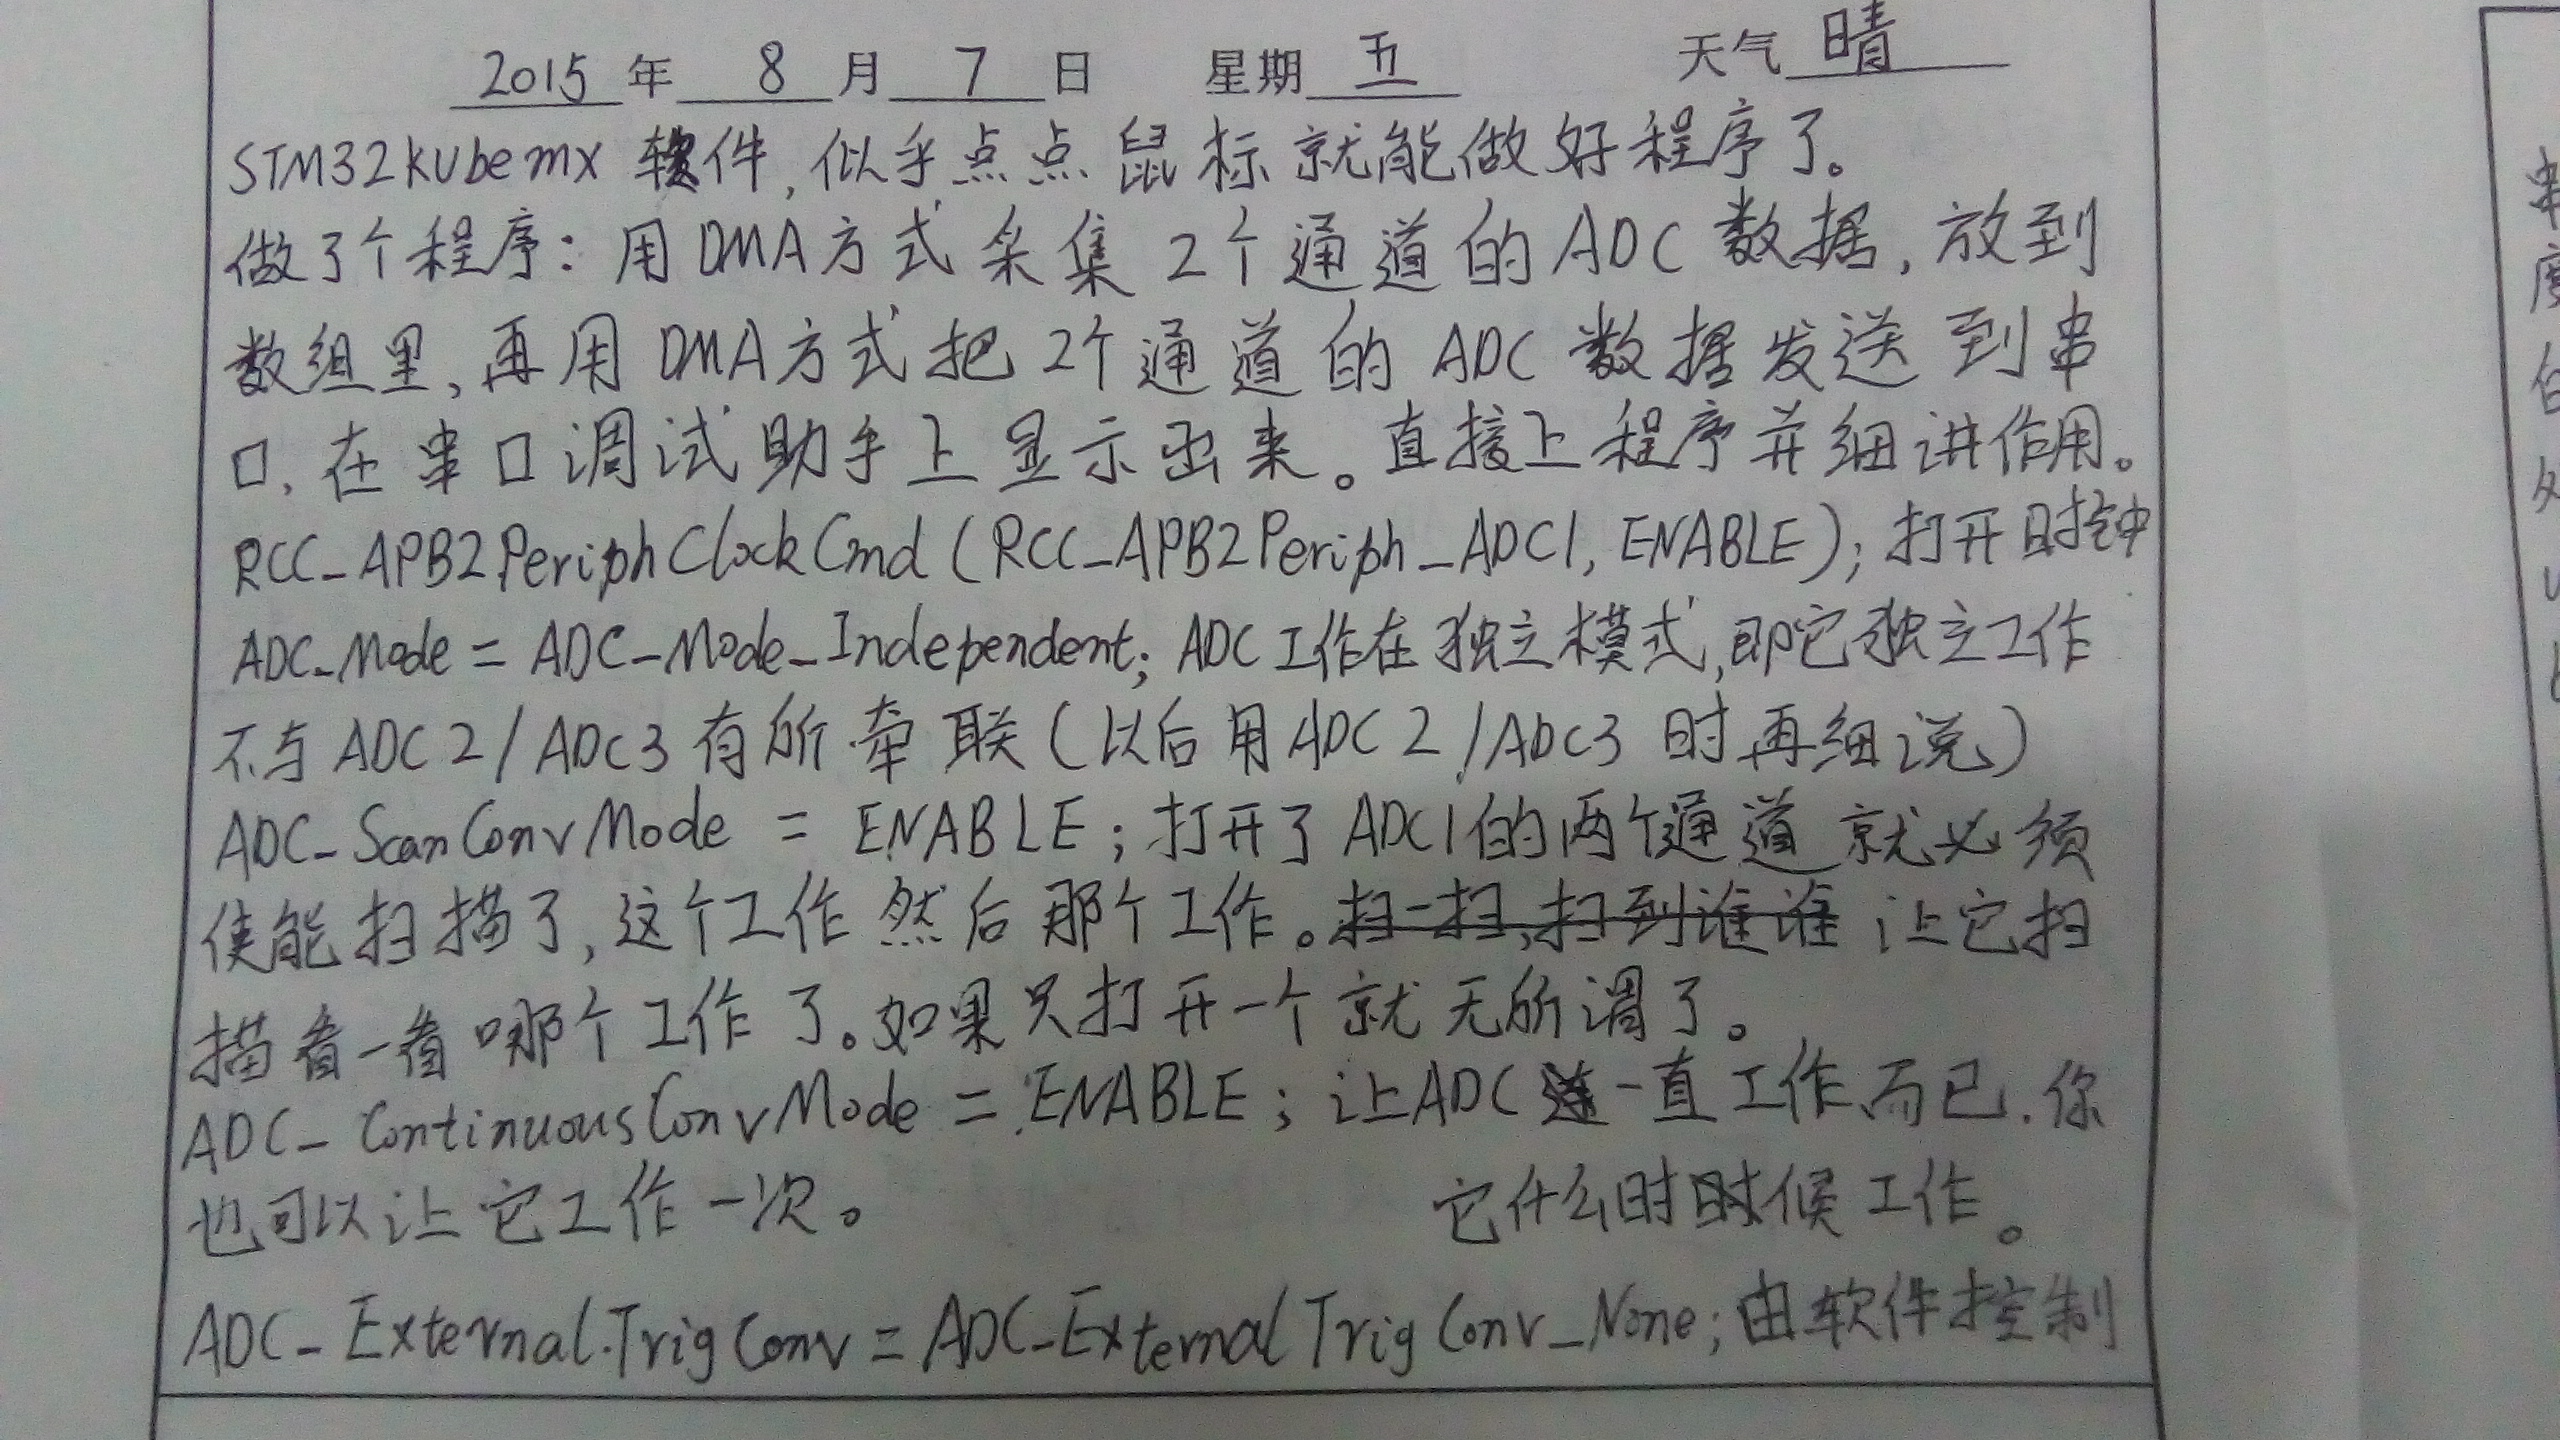 2015 年 8 月 7 日 星期 五 天气 晴
STM32kubemx 软件,似乎点点鼠标就能做好程序了。
做了个程序:用DMA方式采集2个通道的ADC数据,放到
数组里,再用DMA方式把2个通道的ADC数据发送到串
口,在串口调试助手上显示出来。直接上程序并细讲作用。
RCC_APB2PeriphClockCmd(RCC_APB2Periph_ADC1,ENABLE);打开时钟
ADC_Mode = ADC_Mode_Independent;ADC工作在独立模式,即它独立工作
不与ADC2/ADC3有所牵联(以后用ADC2/ADC3时再细说)
ADC_ScanConvMode = ENABLE;打开了ADC1的两个通道就必须
使能扫描了,这个工作然后那个工作。扫一扫,扫到谁谁让它扫
描看一看哪个工作了。如果只打开一个就无所谓了。
ADC_ContinuousConvMode = ENABLE;让ADC一直工作而已.你
也可以让它工作一次。 它什么时时候工作。
ADC_ExternalTrigConv = ADC_ExternalTrigConv_None;由软件控制
串
度